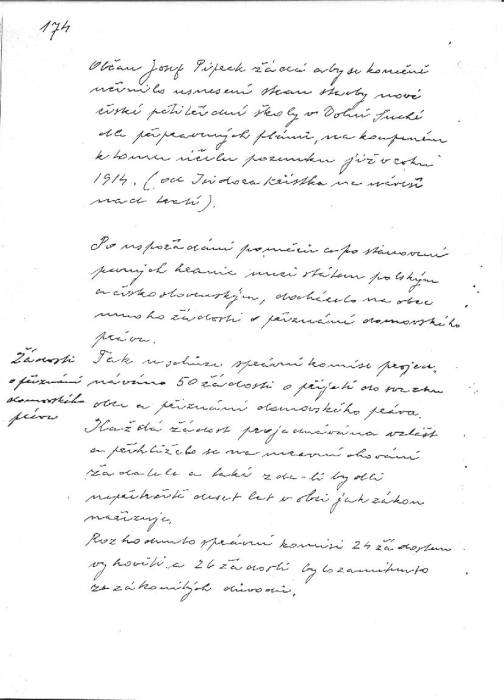 174
Občan Josef Pipek žádá aby se konečně
učinilo usnesení stran stavby nové
české pětitřídní školy v Dolní Suché
dle připravených plánů, na koupeném
k tomu účelu pozemku již v roku
1914. (od Isidora Křístka na návsi
nad tratí).
Po uspořádání poměrů a po stanovení
pevných hranic mezi státem polským
a československým, docházelo na obec
mnoho žádostí o přiznání domovského
práva.
Žádosti
o přiznání
domovského
práva
Tak v schůze správní komise projed-
návána 50 žádosti o přijetí do svazku
obce a přiznání domovského práva.
Každá žádost projednávána vzlášť
a přihlíželo se na mravní chování
žadatele a také zda-li bydlí
nepřetržitě deset let v obci jak zákon
nařizuje.
Rozhodnuto správní komisí 24 žádostem
vyhověti a 26 žádostí bylo zamítnuto
ze zákonitých důvodů.